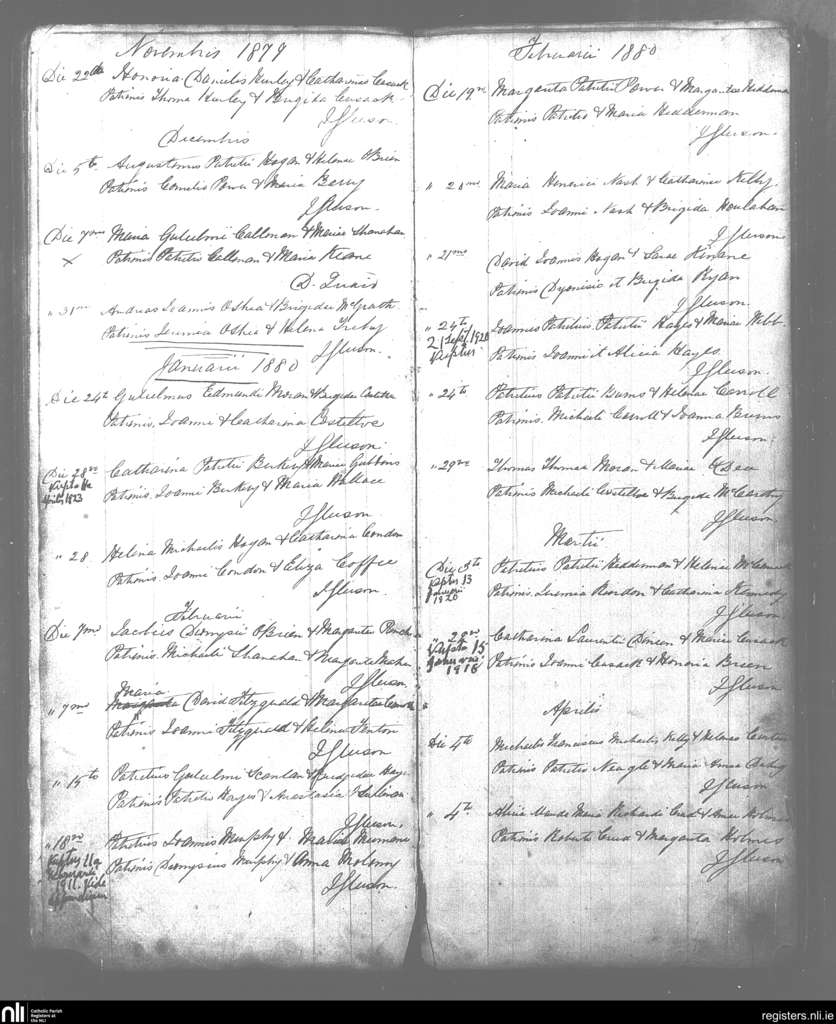 Novembris 1879
Die 22da Honoria Danielis Hurley & Catharinae Cusack
Patrinis Thoma Hurley & Brigita Cusack
J Gleeson
Decembris
Die 5ta Augustinus Patritii Hogan & Helenae O'Brien
Patrinis Cornelio Power & Maria Berry
J Gleeson
Die 7ma Maria Gulielmi Callanan & Mariae Shanahan
x Patrinis Patritio Callanan & Maria Keane
D. Quaid
" 31ma Andreas Joannis O'Shea & Brigidae McGrath
Patrinis Jeremia O'Shea & Helena
J Gleeson
Januarii 1880
Die 24ta Gulielmus Edmundi Moran & Brigidae Costelloe
Patrinis Joanni & Catharina Costelloe
J Gleeson
Die 28va Catharina Patritii Berkery & Mariae Gubbins
Patrinis Joanni Berkery & Maria Wallace
J Gleeson
" 28 Helena Michaelis Hogan & Catharina Condon
Patrinis Joanni Condon & Eliza Coffee
J Gleeson
Februarii
Die 7ma Jacobus Dionysii O'Brien & Margaritae
Patrinis Michaeli Shanahan & Margarita
J Gleeson
Maria
" 7ma Margarita David Fitzgerald & Margaritae
Patrinis Joanni Fitzgerald & Helena Fenton
J Gleeson
" 15ta Patritius Gulielmi Scanlan & Brigidae Hayes
Patrinis Patritio Hayes & Anastasia Sullivan
J Gleeson
" 18va Patritius Joannis Murphy & Mariae
Patrinis Dionysius Murphy & Anna Molony
1911. Vide
J Gleeson
Februarii 1880
Die 19na Margarita Patritii Power & Margaritae Hedderman
Patrinis Patritio & Maria Hedderman
J Gleeson
" 20ma Maria Henrici Nash & Catharinae Kelly
Patrinis Joanni Nash & Brigida Houlahan
J Gleeson
" 21ma David Joannis Hogan & Sarae Kinane
Patrinis Dyonisio et Brigida Ryan
J Gleeson
" 24ta Joannes Patritius Patritii Hayes & Mariae Webb
21 Sept 1920
Patrinis Joanni et Alicia Hayes
J Gleeson
" 24ta Patritius Patritii Burns & Helenae Carroll
Patrinis Michaeli Carroll & Joanna Burns
J Gleeson
" 29na Thomas Thomae Moran & Mariae O'Dea
Patrinis Michaeli Costelloe & Brigida McCarthy
J Gleeson
Martii
Die 5ta Patritius Patritii Hedderman & Helenae McCormack
Patrinis Jeremia Riordan & Catharina Kennedy
13 Januarii 1920
J Gleeson
Catharina Laurentii Dineen & Mariae Cusack
Patrinis Joanni Cusack & Honoria Breen
15 Januarii 1918
J Gleeson
Aprilis
Die 4ta Michaelis Franciscus Michaelis Kelly & Helenae
Patrinis Patritio Neagle & Maria Anna
J Gleeson
" 4ta Alicia Maude Maria Richardi & Annae Holmes
Patrinis Roberto & Margarita Holmes
J Gleeson
nli
Catholic Parish
Registers at
the NLI
registers.nli.ie